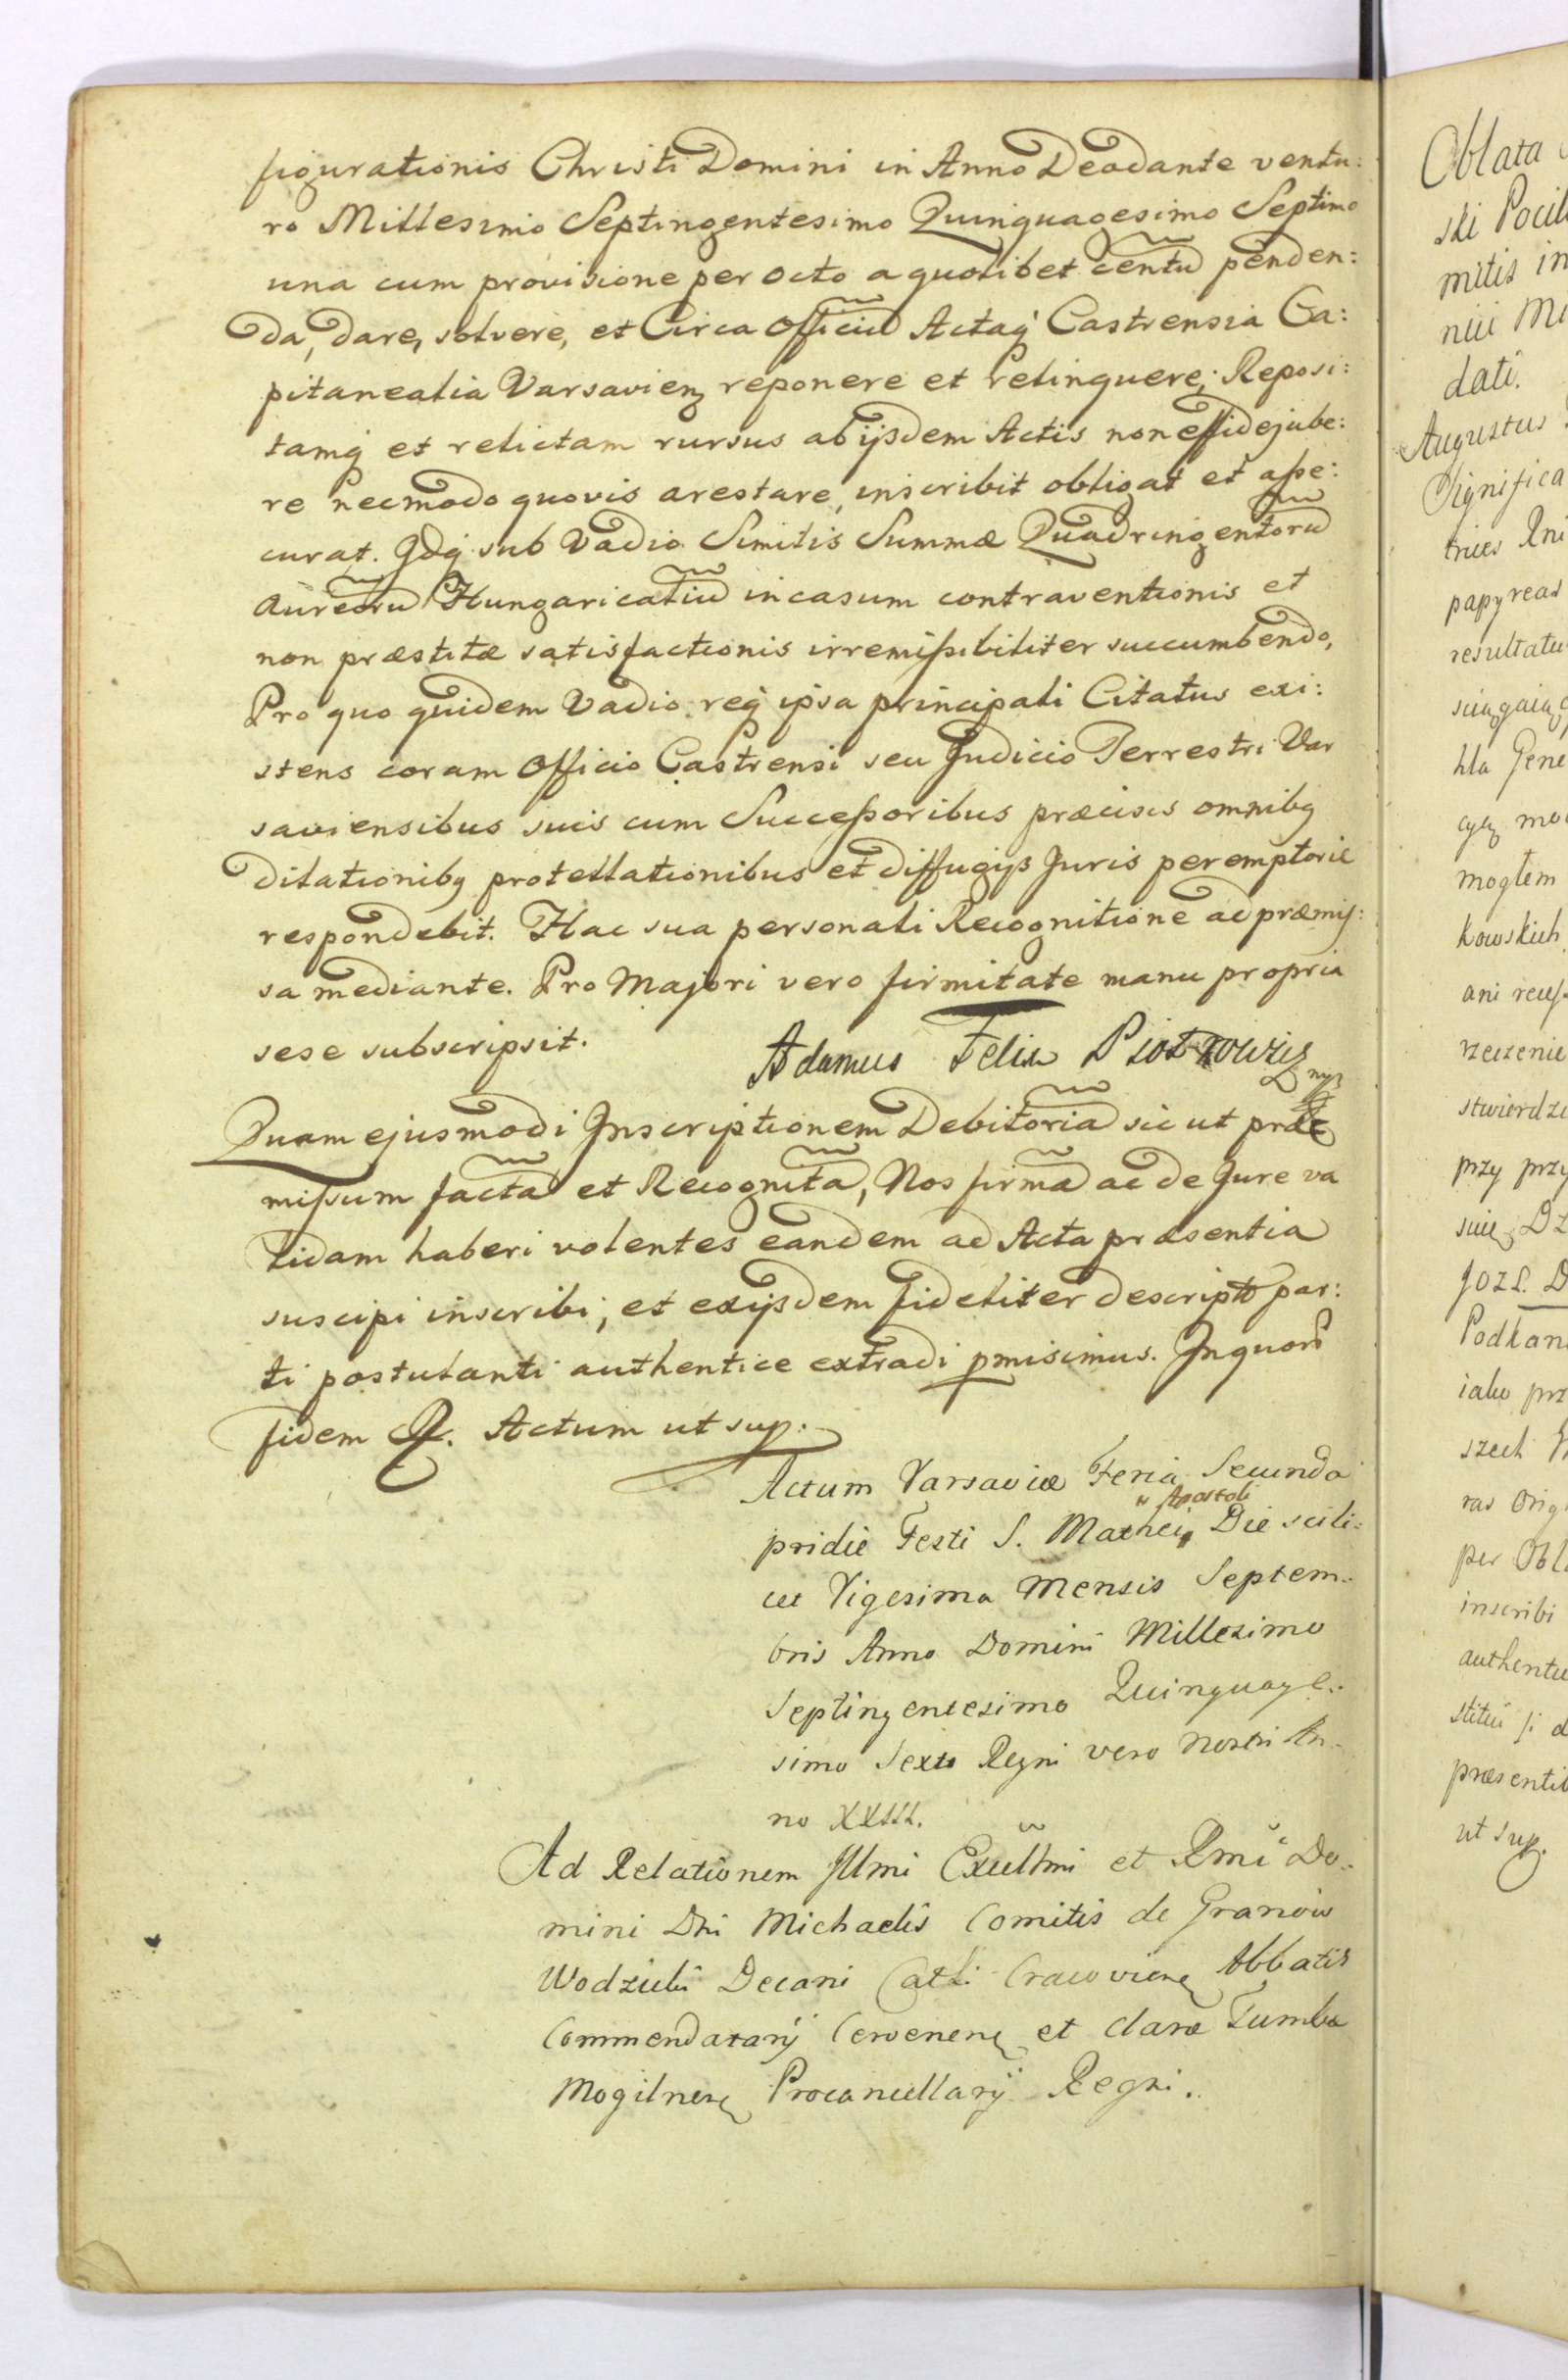 figurationis Christi Domini in Anno Deodante ventu:
ro Millesimo Septingentesimo Quinquagesimo Septimo
una cum provisione per octo a quolibet centũ penden:
da, dare, solvere, et Circa Officiũ Actaq Castrensia Ca:
pitanealia Varsavien reponere et relinquere; Reposi:
tamq et relictam rursus ab ijsdem Actis non effidejube:
re necmodo quovis arestare, inscribit obligat et asse:
curat. Idq sub Vadio Similis Summæ Quadringentorũ
Aureorũ Hungaricaliũ in casum contraventionis et
non præstitæ satisfactionis irremissibiliter succumbendo,
Pro quo quidem Vadio req ipsa principali Citatus exi:
stens coram Officio Castrensi seu Judicio Terrestri Var
saviensibus suis cum Successoribus præcisis omnibq
dilationibq protellationibus et diffugijs Juris peremptorie
respondebit. Hac sua personali Recognitione ad præmis:
sa mediante. Pro Majori vero firmitate manu propria
sese subscripsit.
Adamus Felix Piotrowicz mp
Quam ejusmodi Inscriptionem Debitoriã sic ut præ
missum factã et Recognitã, Nos firmã ac de Jure va
lidam haberi volentes eandem ad Acta præsentia
suscipi inscribi, et exijsdem fideliter descriptã par:
ti postulanti authentice extradi pmisimus. In quorũ
fidem &. Actum ut sup:
Actum Varsaviæ Feria Secunda
pridie Festi S. Mathei Apostoli Die scili:
cet Vigesima Mensis Septem:
bris Anno Domini Millesimo
Septingentesimo Quinquage:
simo Sexto Regni vero Nostri An:
no XXIII.
Ad Relationem Illmi Excellmi et Rmi Do:
mini Dni Michaelis Comitis de Granow
Wodzicki Decani Catli Cracovien Abbatis
Commendatarij Cervenen et claræ Tumbæ
Mogilnen Procancellarij Regni.
Oblata
ski
mitis in
nii
dati.
Augustus
Significa
trices
papyreas
resultatu
hla Gene
mogłem
kowskich
ani
rzeczenie
stwierdze
przy przy
Podkan
iako prz
szech
ras Orig
per Obl
inscribi
authentic
præsentib
ut sup.